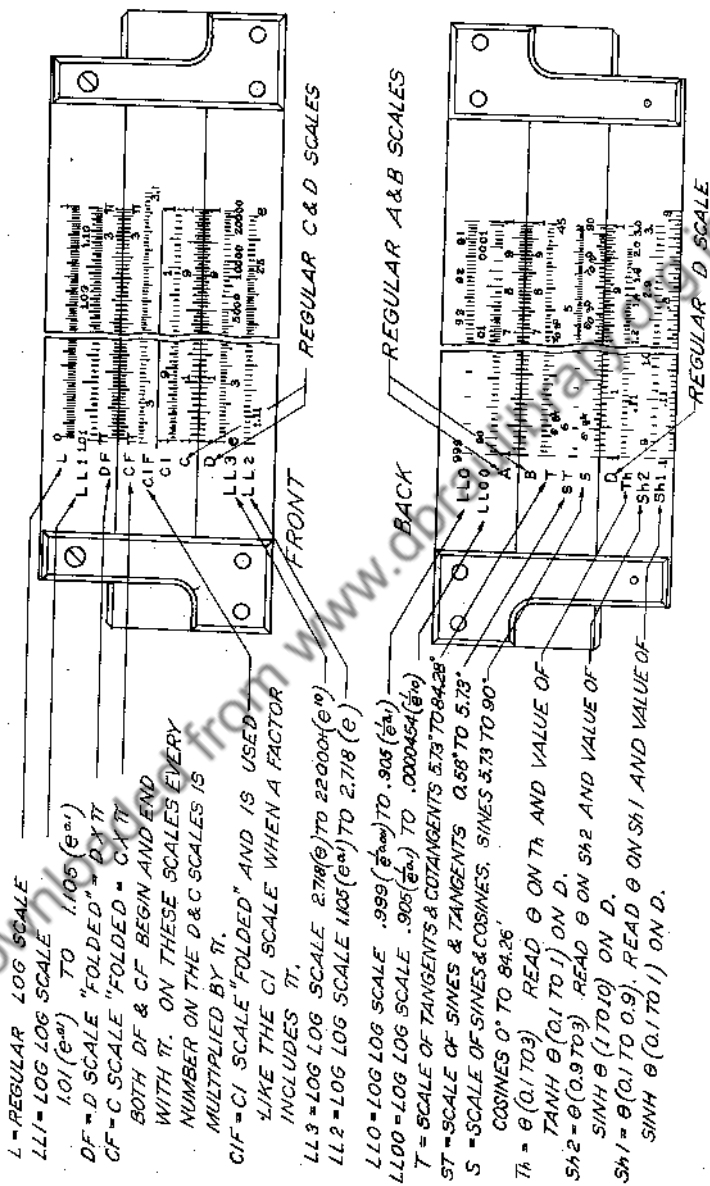 L = REGULAR LOG SCALE
LL1 = LOG LOG SCALE
1.01 (e⁰·⁰¹) TO 1.105 (e⁰·¹)
DF = D SCALE "FOLDED" = D X π
CF = C SCALE "FOLDED = C X π
BOTH DF & CF BEGIN AND END
WITH π. ON THESE SCALES EVERY
NUMBER ON THE D & C SCALES IS
MULTIPLIED BY π.
CIF = CI SCALE "FOLDED" AND IS USED
LIKE THE CI SCALE WHEN A FACTOR
INCLUDES π.
LL3 = LOG LOG SCALE 2.718 (e) TO 22000+ (e¹⁰)
LL2 = LOG LOG SCALE 1.105 (e⁰·¹) TO 2.718 (e)
L 0
LL1 1.01
DF π
CF π
CIF
CI
C
D
LL3 e
LL2 1.11
5000 10000 20000
FRONT
REGULAR C & D SCALES
LL0 = LOG LOG SCALE .999 TO .905
LL00 = LOG LOG SCALE .905 TO .0000454
T = SCALE OF TANGENTS & COTANGENTS 5.73° TO 84.28°
ST = SCALE OF SINES & TANGENTS 0.58° TO 5.73°
S = SCALE OF SINES & COSINES, SINES 5.73 TO 90°
COSINES 0° TO 84.26°
Th = θ (0.1 TO 3) READ θ ON Th AND VALUE OF
TANH θ (0.1 TO 1) ON D.
Sh2 = θ (0.9 TO 3) READ θ ON Sh2 AND VALUE OF
SINH θ (1 TO 10) ON D.
Sh1 = θ (0.1 TO 0.9). READ θ ON Sh1 AND VALUE OF
SINH θ (0.1 TO 1) ON D.
LL0 .999
LL00
A 1
B 1
T
ST
S
D 1
Th
Sh2
Sh1
BACK
REGULAR A & B SCALES
REGULAR D SCALE
Downloaded from www.dbraulibrary.org.in